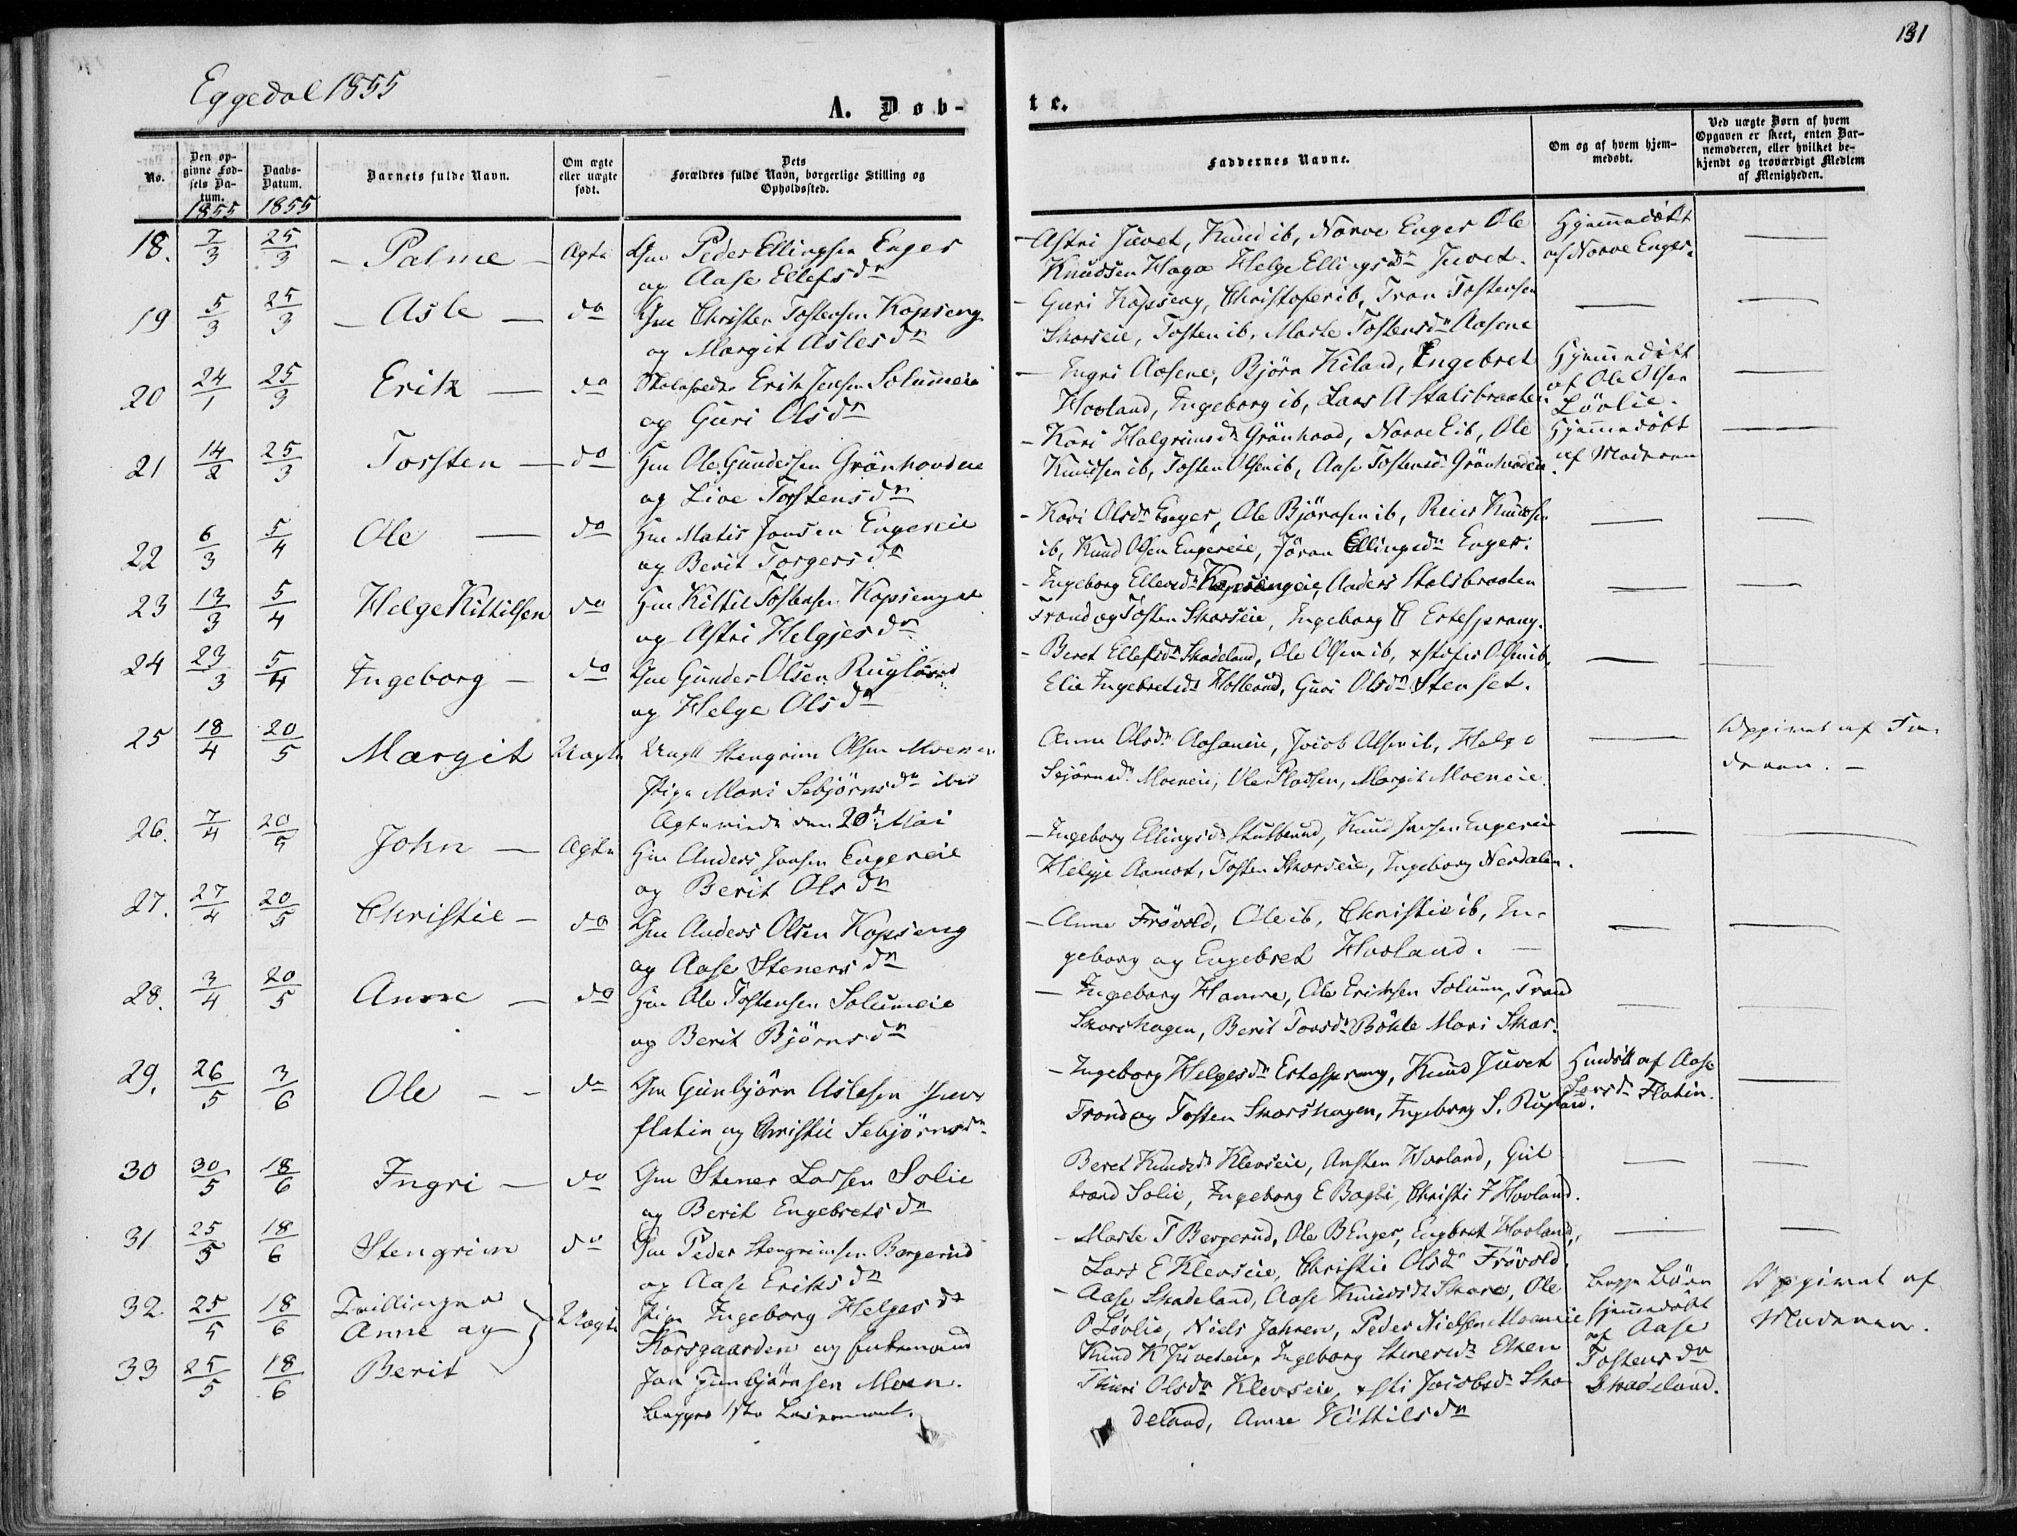 131
Eggedal 1855
A. Døb-
te.
No.
Den op-
givne Fød-
sels Da-
tum.
1855
Daabs-
Datum.
1855
Barnets fulde Navn.
Om ægte
eller uægte
født.
Dets
Forældres fulde Navn, borgerlige Stilling og
Opholdssted.
Faddernes Navne.
Om og af hvem hjem-
medøbt.
Ved uægte Børn af hvem
Opgaven er skeet, enten Bar-
nemoderen, eller hvilket be-
kjendt og troværdigt Medlem
af Menigheden.
18. 7/3 25/3 – Palme – Ægte Gm Peder Ellingsen Enger
og Aase Ellefsdr
– Astri Juvet, Knud ib, Narve Enger Ole
Knudsen Haga Helge Ellingsdr Juvet.
Hjemmedøbt
af Narve Enger.
19 5/3 25/3 – Asle – do Gm Christen Tostensen Kopseng
og Margit Aslesdr
– Guri Kopseng, Christofer ib, Tron Tostensen
Skarseie, Tosten ib, Marte Tostensdr Aasene
20 24/1 25/3 Erik – do Erik Jensen Solumeie
og Guri Olsdr
– Ingri Aasene, Bjørn Kiland, Engebret
Hovland, Ingeborg ib, Lars A Stalsbraaten
Hjemmedøbt
af Ole Olsen
Løvlie.
21 14/2 25/3 Torsten – do Gm Ole Gundersen Grønhovdeie
og Live Torstensdr
– Kari Halgrimsdr Grønhovd, Narve E ib, Ole
Knudsen ib, Tosten Olsen ib, Aase Tostensdr Grønhovdeie.
Hjemmedøbt
af Moderen
22 6/3 5/4 Ole – do Gm Matis Jonsen Engereie
og Berit Torgersdr
– Kari Olsdr Enger, Ole Bjørnsen ib, Reier Knudsen
ib, Knud Olsen Engereie, Jøran Ellingsdr Enger.
23 13/3 5/4 Helge Kittilsen do Gm Kittil Tostensen Kopsengeie
og Astri Helgjesdr
– Ingeborg Ellevsdr Kopsengeie, Anders Stalsbraaten
Trond og Tosten Skarseie, Ingeborg E Ertesprang.
24 23/3 5/4 Ingeborg – do Gm Gunder Olsen Rugland
og Helge Olsdr
– Beret Ellefsdr Skadeland, Ole Olsen ib, Olsen ib,
Elie Ingebretsdr Hollerud, Guri Olsdr Stenset.
25 18/4 20/5 Margit Uægte Ungk Stengrim Olsen Moeneie
Pige Mari Sebjørnsdr ibid
Anne Olsdr Aasaneie, Jacob Olsen ib, Helge
Sebjørnsdr Moeneie, Ole Pladsen, Margit Moeneie.
Opgivet af Fa-
deren. –
Ægteviede den 20d Mai
26. 7/4 20/5 John – Ægte Gm Anders Jonsen Engereie
og Berit Olsdr
– Ingeborg Ellingsdr Stutterud, Knud Jensen Engereie
Helgje Aamot, Tosten Skarseie, Ingeborg Nerdalen.
27. 27/4 20/5 Christie – do Gm Anders Olsen Kopseng
og Aase Stenersdr
– Anne Frøvold, Ole ib, Christie ib, In-
geborg og Engebret Hovland. –
28. 3/4 20/5 Anne – do Gm Ole Tostensen Solumeie
og Berit Bjørnsdr
– Ingeborg Hamre, Ole Eriksen Solum, Trond
Skarshagen, Berit Tovsdr Bøhle Mari Skar.
29. 26/5 3/6 Ole – – do Gm Gunbjørn Aslesen
flatin og Christie Sebjørnsdr
– Ingeborg Helgesdr Ertesprang, Knud Juvet
Trond og Tosten Skarshagen, Ingeborg S. Rugland.
Hmdøbt af Aase
Larsdr Flatin.
30 30/5 18/6 Ingri – do Gm Stener Larsen Solie
og Berit Engebretsdr
Beret Knudsdr Klevseie, Ansten Hovland, Gul
brand Solie, Ingeborg E Bagli, Christi T Hovland.
31 25/5 18/6 Stengrim do Gm Peder Stengrimsen Bergerud
og Aase Eriksdr
– Marte T Bergerud, Ole B Enger, Engbret Hovland,
Lars E Klevseie, Christie Olsdr Frøvold
32. 25/5 18/6 Tvillinger
Anne og } Uægte Pige Ingeborg Helgesdr
33 25/5 18/6 Berit
Korsgaarden og Enkemand
Jon Gunbjørnsen Moen.
Begges 1ste Leiermaal.
– Aase Skadeland, Aase Knudsdr Skare, Ole
P Løvlie, Niels Jahren, Peder Nielsen Moeneie
Knud K Juveteie, Ingeborg Stenersdr
Thuri Olsdr Klevseie, Jacobsdr Ska
deland, Anne Kittilsdr
begge Børn
hjemmedøbt
af Aase
Tostensdr
Skadeland.
Opgivet af
Moderen.